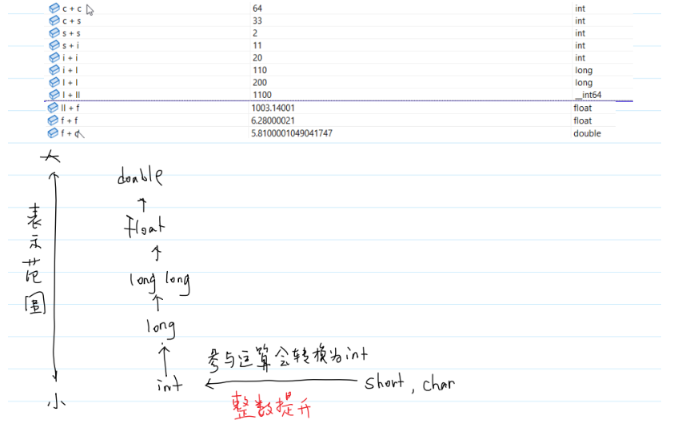 c + c 64 int
c + s 33 int
s + s 2 int
s + i 11 int
i + i 20 int
i + l 110 long
l + l 200 long
l + ll 1100 __int64
ll + f 1003.14001 float
f + f 6.28000021 float
f + d 5.8100001049041747 double
大
double
表示范围
float
long long
long
参与运算会转换为int
int
short, char
小
整数提升